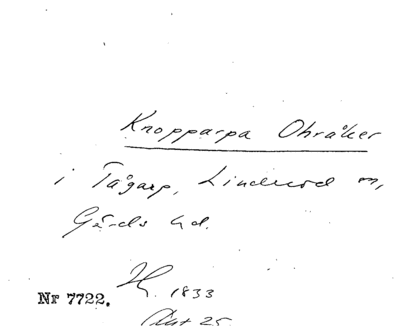 Knopparpa Ohråker
i Tågarp, Linderöd m,
Gärds hd.
Nr 7722. 1833
25